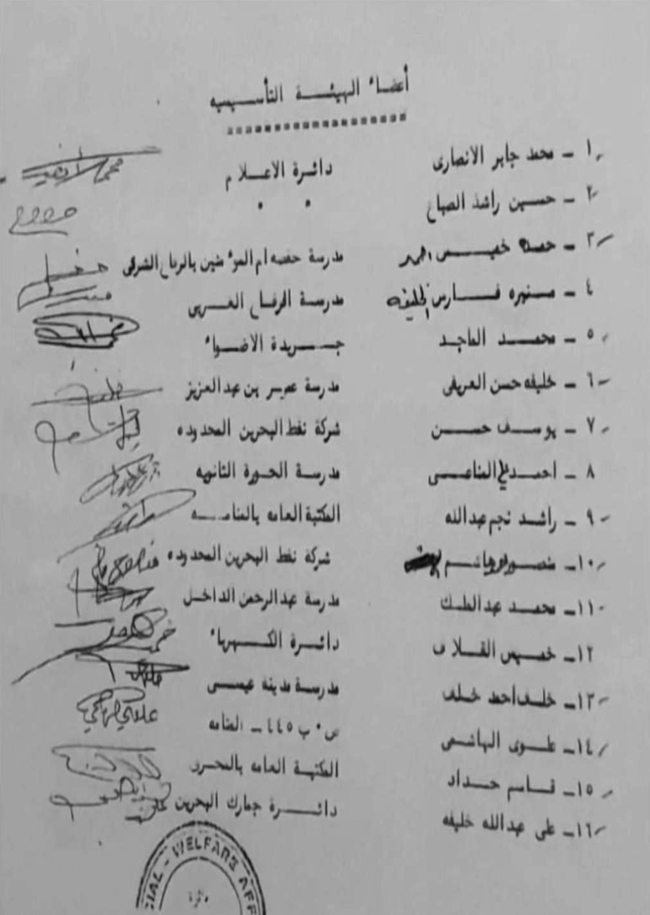 أعضاء الهيئة التأسيسيه
١ – محمد جابر الانصارى دائرة الاعلام
٢ – حسين راشد الصباغ " "
٣ – حصه خميس مدرسة حفصه ام المؤمنين بالرفاع الشرقى
٤ – منيره فارس الخليفه مدرسة الرفاع الغربى
٥ – محمد الماجد جريدة الاضواء
٦ – خليفه حسن العريفى مدرسة عمر بن عبدالعزيز
٧ – يوسف حسن شركة نفط البحرين المحدوده
٨ – احمد المناعى مدرسة الحورة الثانويه
٩ – راشد نجم عبدالله المكتبة العامه بالمنامه
١٠ – منصور هاشم شركة نفط البحرين المحدوده
١١ – محمد عبدالملك مدرسة عبدالرحمن الداخل
١٢ – خميس القلاف دائرة الكهرباء
١٣ – خلف احمد خلف مدرسة مدينه عيسى
١٤ – علوى الهاشمى ص٠ب ٤٤٥ – المنامه
١٥ – قاسم حداد المكتبة العامه بالمحرق
١٦ – على عبدالله خليفه دائرة جمارك البحرين
WELFARE